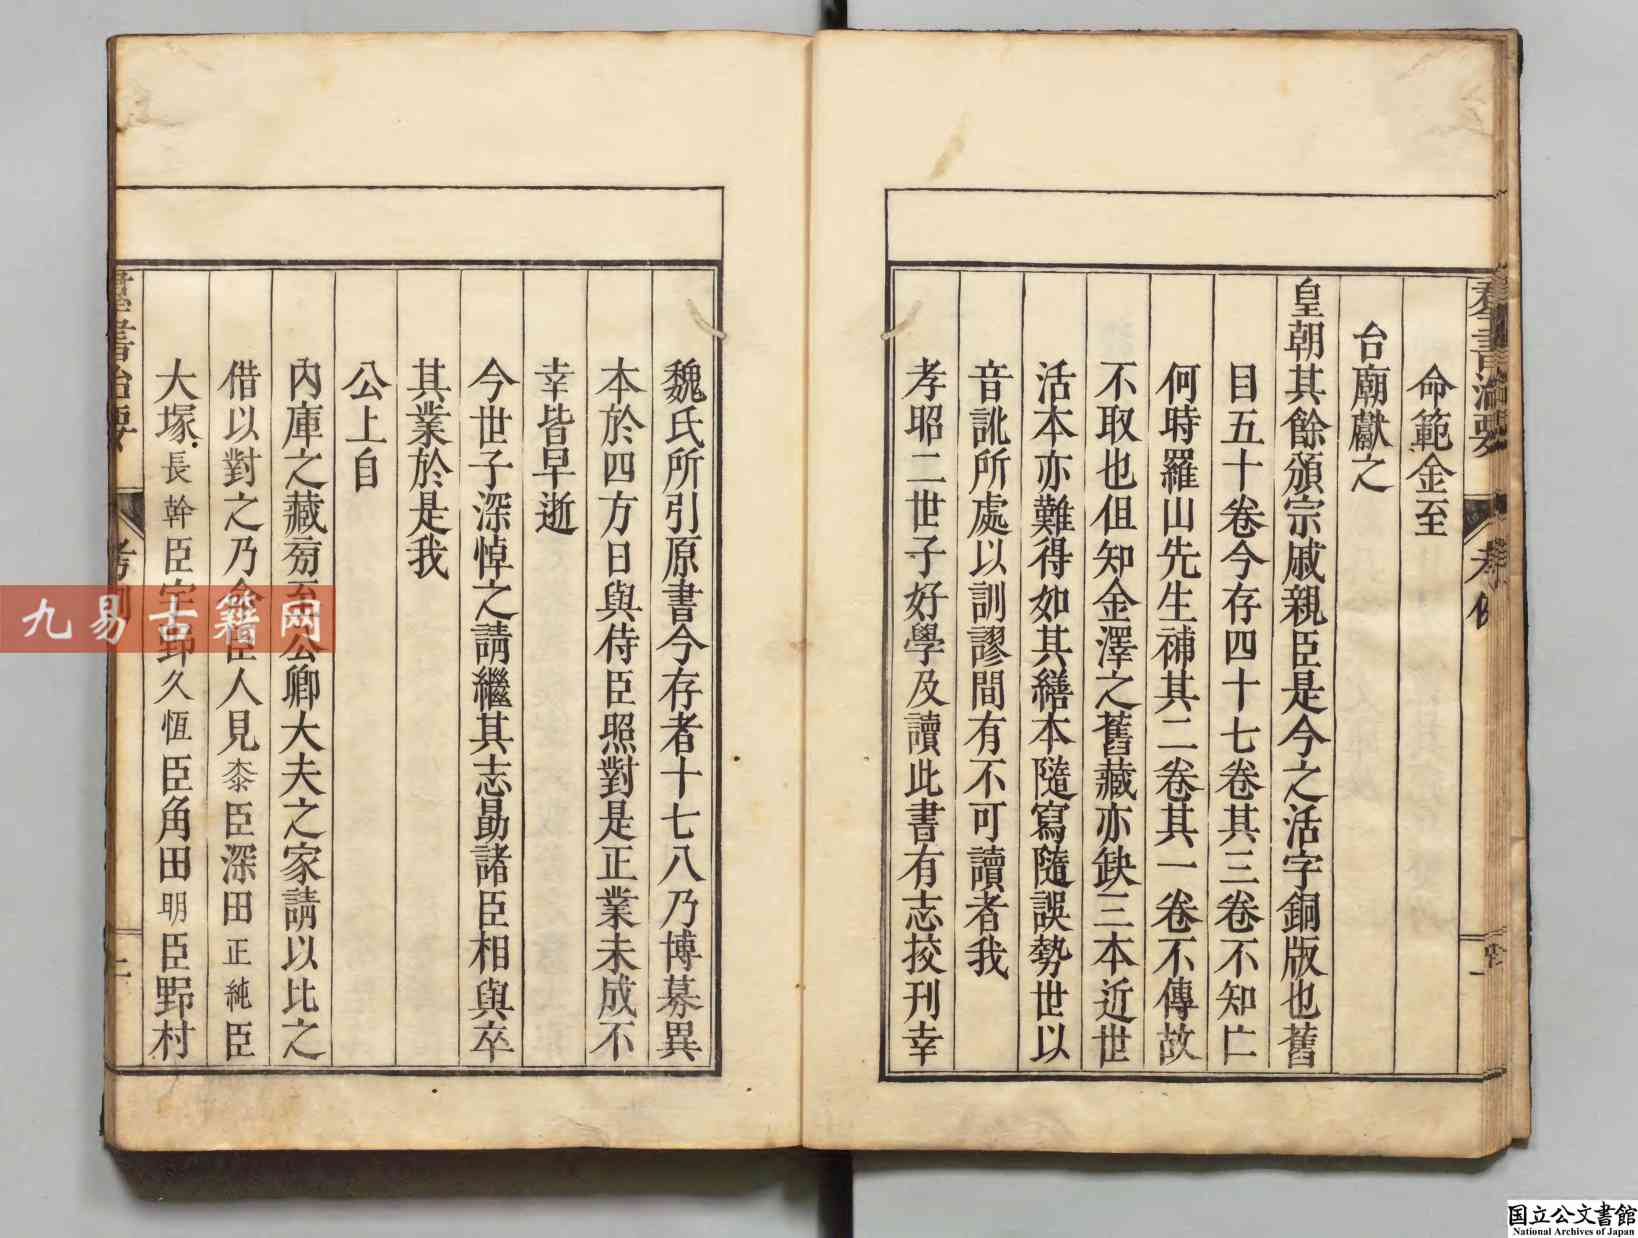 群書治要 考例 一
命範金至
台廟獻之
皇朝其餘頒宗戚親臣是今之活字銅版也舊
目五十卷今存四十七卷其三卷不知亡
何時羅山先生補其二卷其一卷不傳故
不取也但知金澤之舊藏亦缺三本近世
活本亦難得如其繕本隨寫隨誤勢世以
音訛所處以訓謬間有不可讀者我
孝昭二世子好學及讀此書有志挍刊幸
魏氏所引原書今存者十七八乃博募異
本於四方日與侍臣照對是正業未成不
幸皆早逝
今世子深悼之請繼其志勗諸臣相與卒
其業於是我
公上自
內庫之藏旁至公卿大夫之家請以比之
借以對之乃命臣人見桼臣深田正純臣
大塚長幹臣宇野久恆臣角田明臣野村
群書治要 考例
九易古籍网
国立公文書館
National Archives of Japan